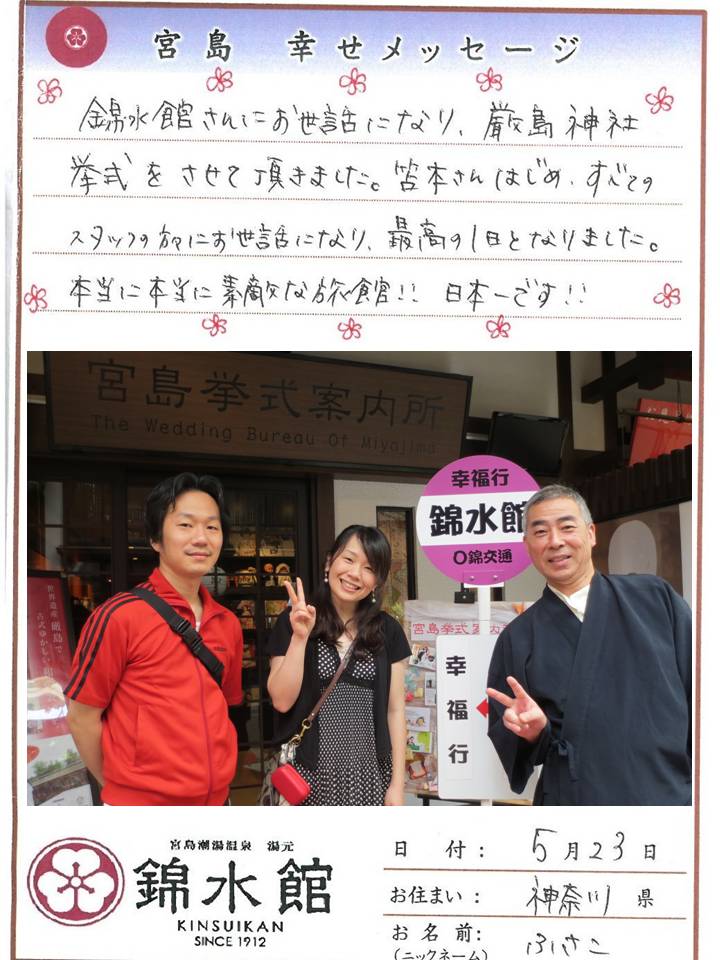 宮島 幸せメッセージ
錦水館さんにお世話になり、厳島神社
挙式をさせて頂きました。笘本さんはじめ、すべての
スタッフの方々にお世話になり、最高の1日となりました。
本当に本当に素敵な旅館!! 日本一です!!
宮島挙式案内所
The Wedding Bureau Of Miyajima
幸福行
錦水館
O錦交通
世界遺産 厳島で
宮島挙式案内所
幸福行
宮島潮湯温泉 湯元
錦水館
KINSUIKAN
SINCE 1912
日 付: 5月23日
お住まい: 神奈川 県
お名前: ふさこ
(ニックネーム)